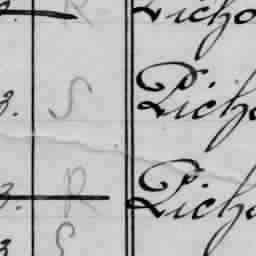 R Picho
3. S Picho
3. R Picho
3 S